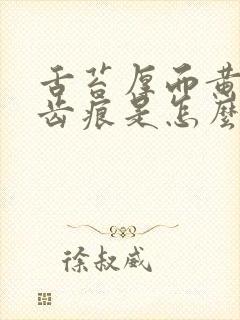 舌苔厚而黄
齿痕是怎麼
徐叔威